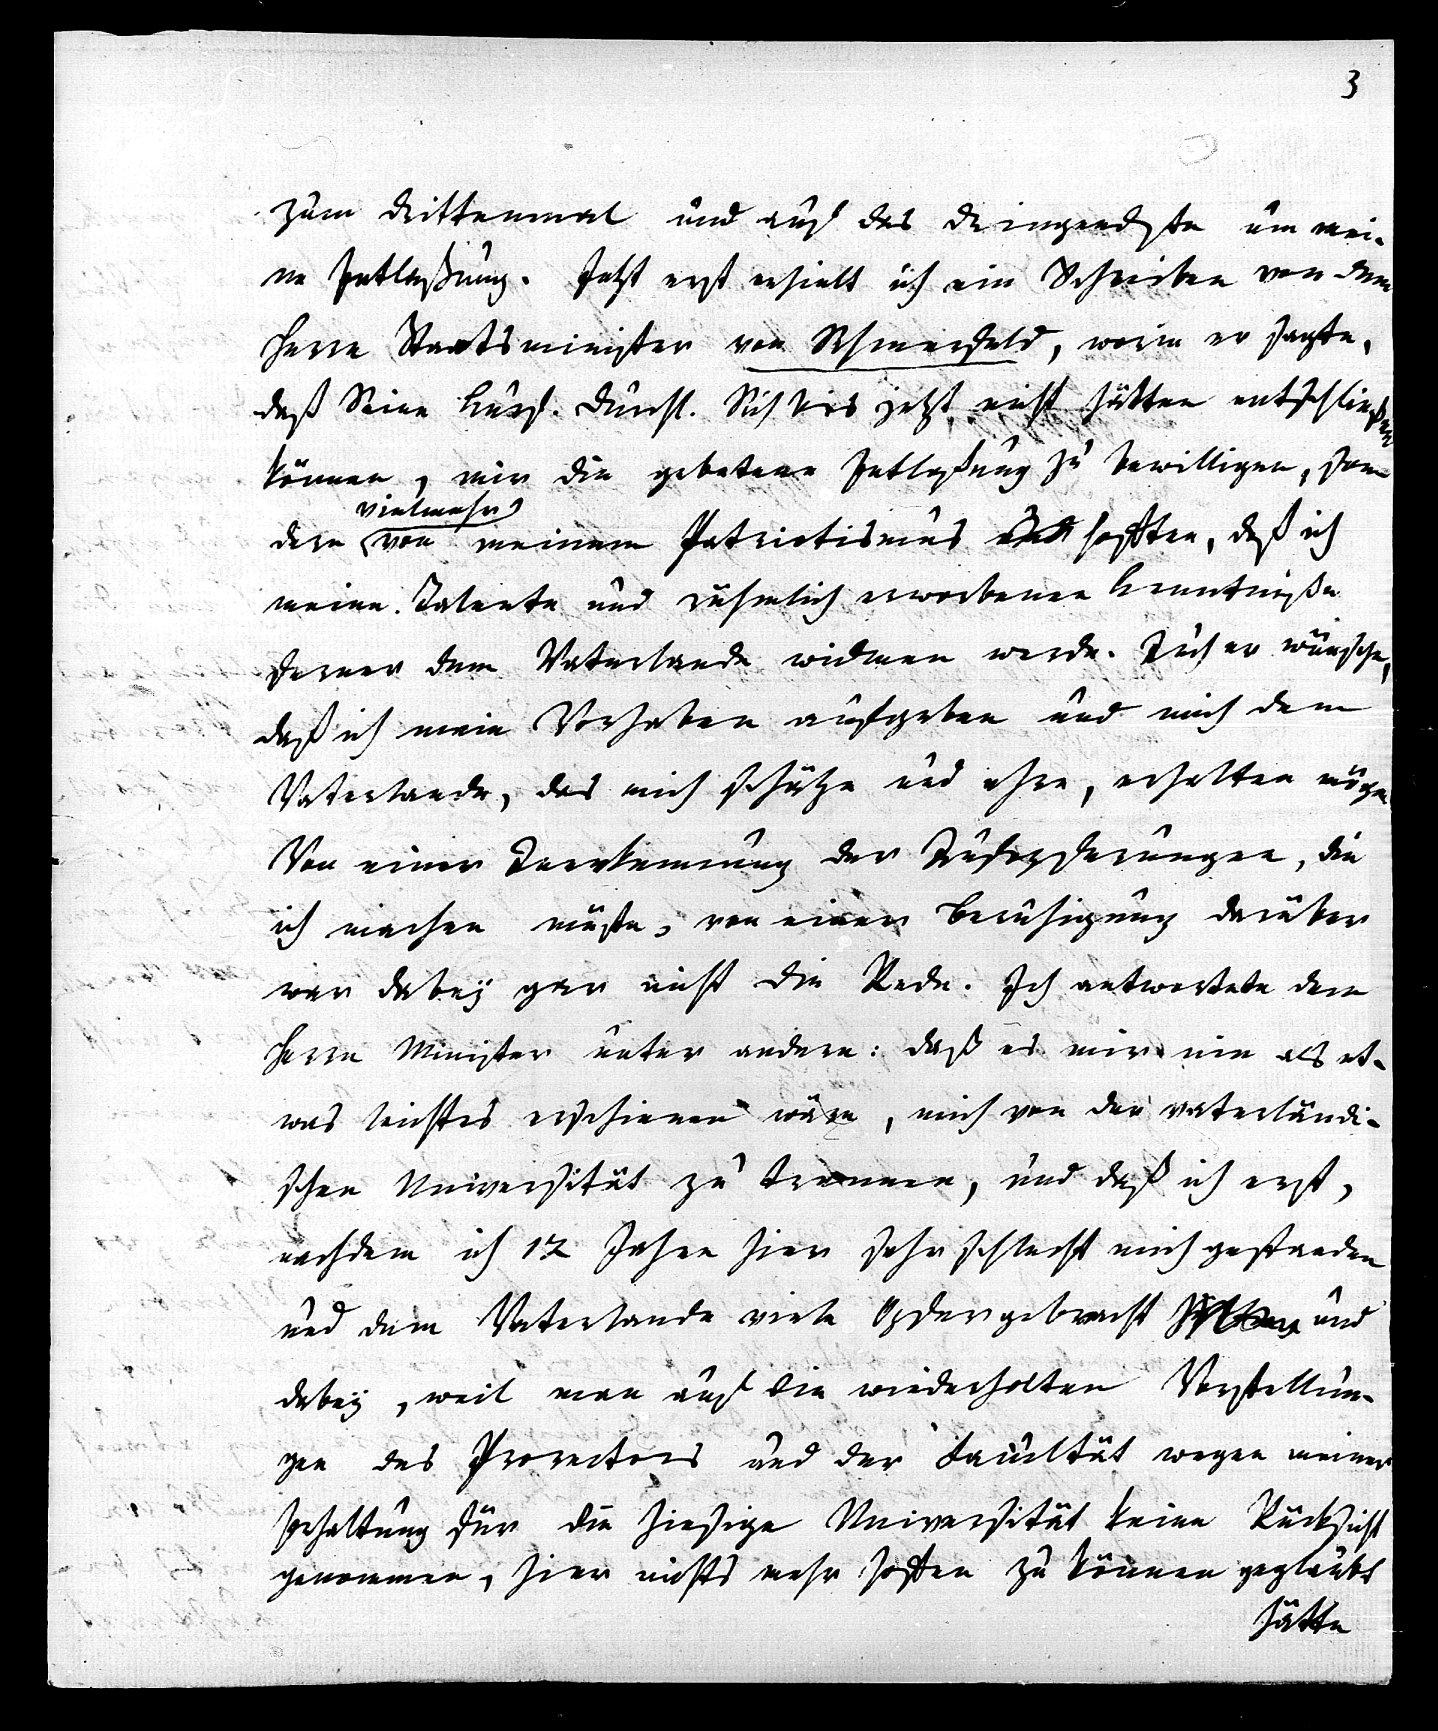 3
zum drittenmal und auf das dringendste um mei-
ne Entlaßung. Jetzt erst erhielt ich ein Schreiben von dem
Herrn Staatsminister von Schmerfeld, worin er sagte,
daß Seine Kurf. Durchl. Sich bis jetzt nicht hätten entschließen
können, mir die gebetene Entlaßung zu bewilligen, son
dern vielmehr von meinem Patriotismus hofften, daß ich
meine Talente und rühmlich erworbenen Kenntniße
ferner dem Vaterlande widmen werde. Auch er wünsche,
daß ich mein Vorhaben aufgeben und mich dem
Vaterlande, das mich schätze und ehre, erhalten möge.
Von einer Anerkennung der Aufopferungen, die
ich machen müßte, von einer Beruhigung darüber
war dabey gar nicht die Rede. Ich antwortete dem
Herrn Minister unter andern: daß es mir nie als et-
was leichtes erschienen wäre, mich von der vaterländi-
schen Universität zu trennen, und daß ich erst,
nachdem ich 12 Jahre hier sehr schlecht mich gestanden
und dem Vaterlande viele Opfer gebracht und
dabey, weil man auf die wiederholten Vorstellun-
gen des Prorectors und der Facultät wegen meiner
Erhaltung für die hiesige Universität keine Rücksicht
genommen, hier nichts mehr hoffen zu können geglaubt
hätte